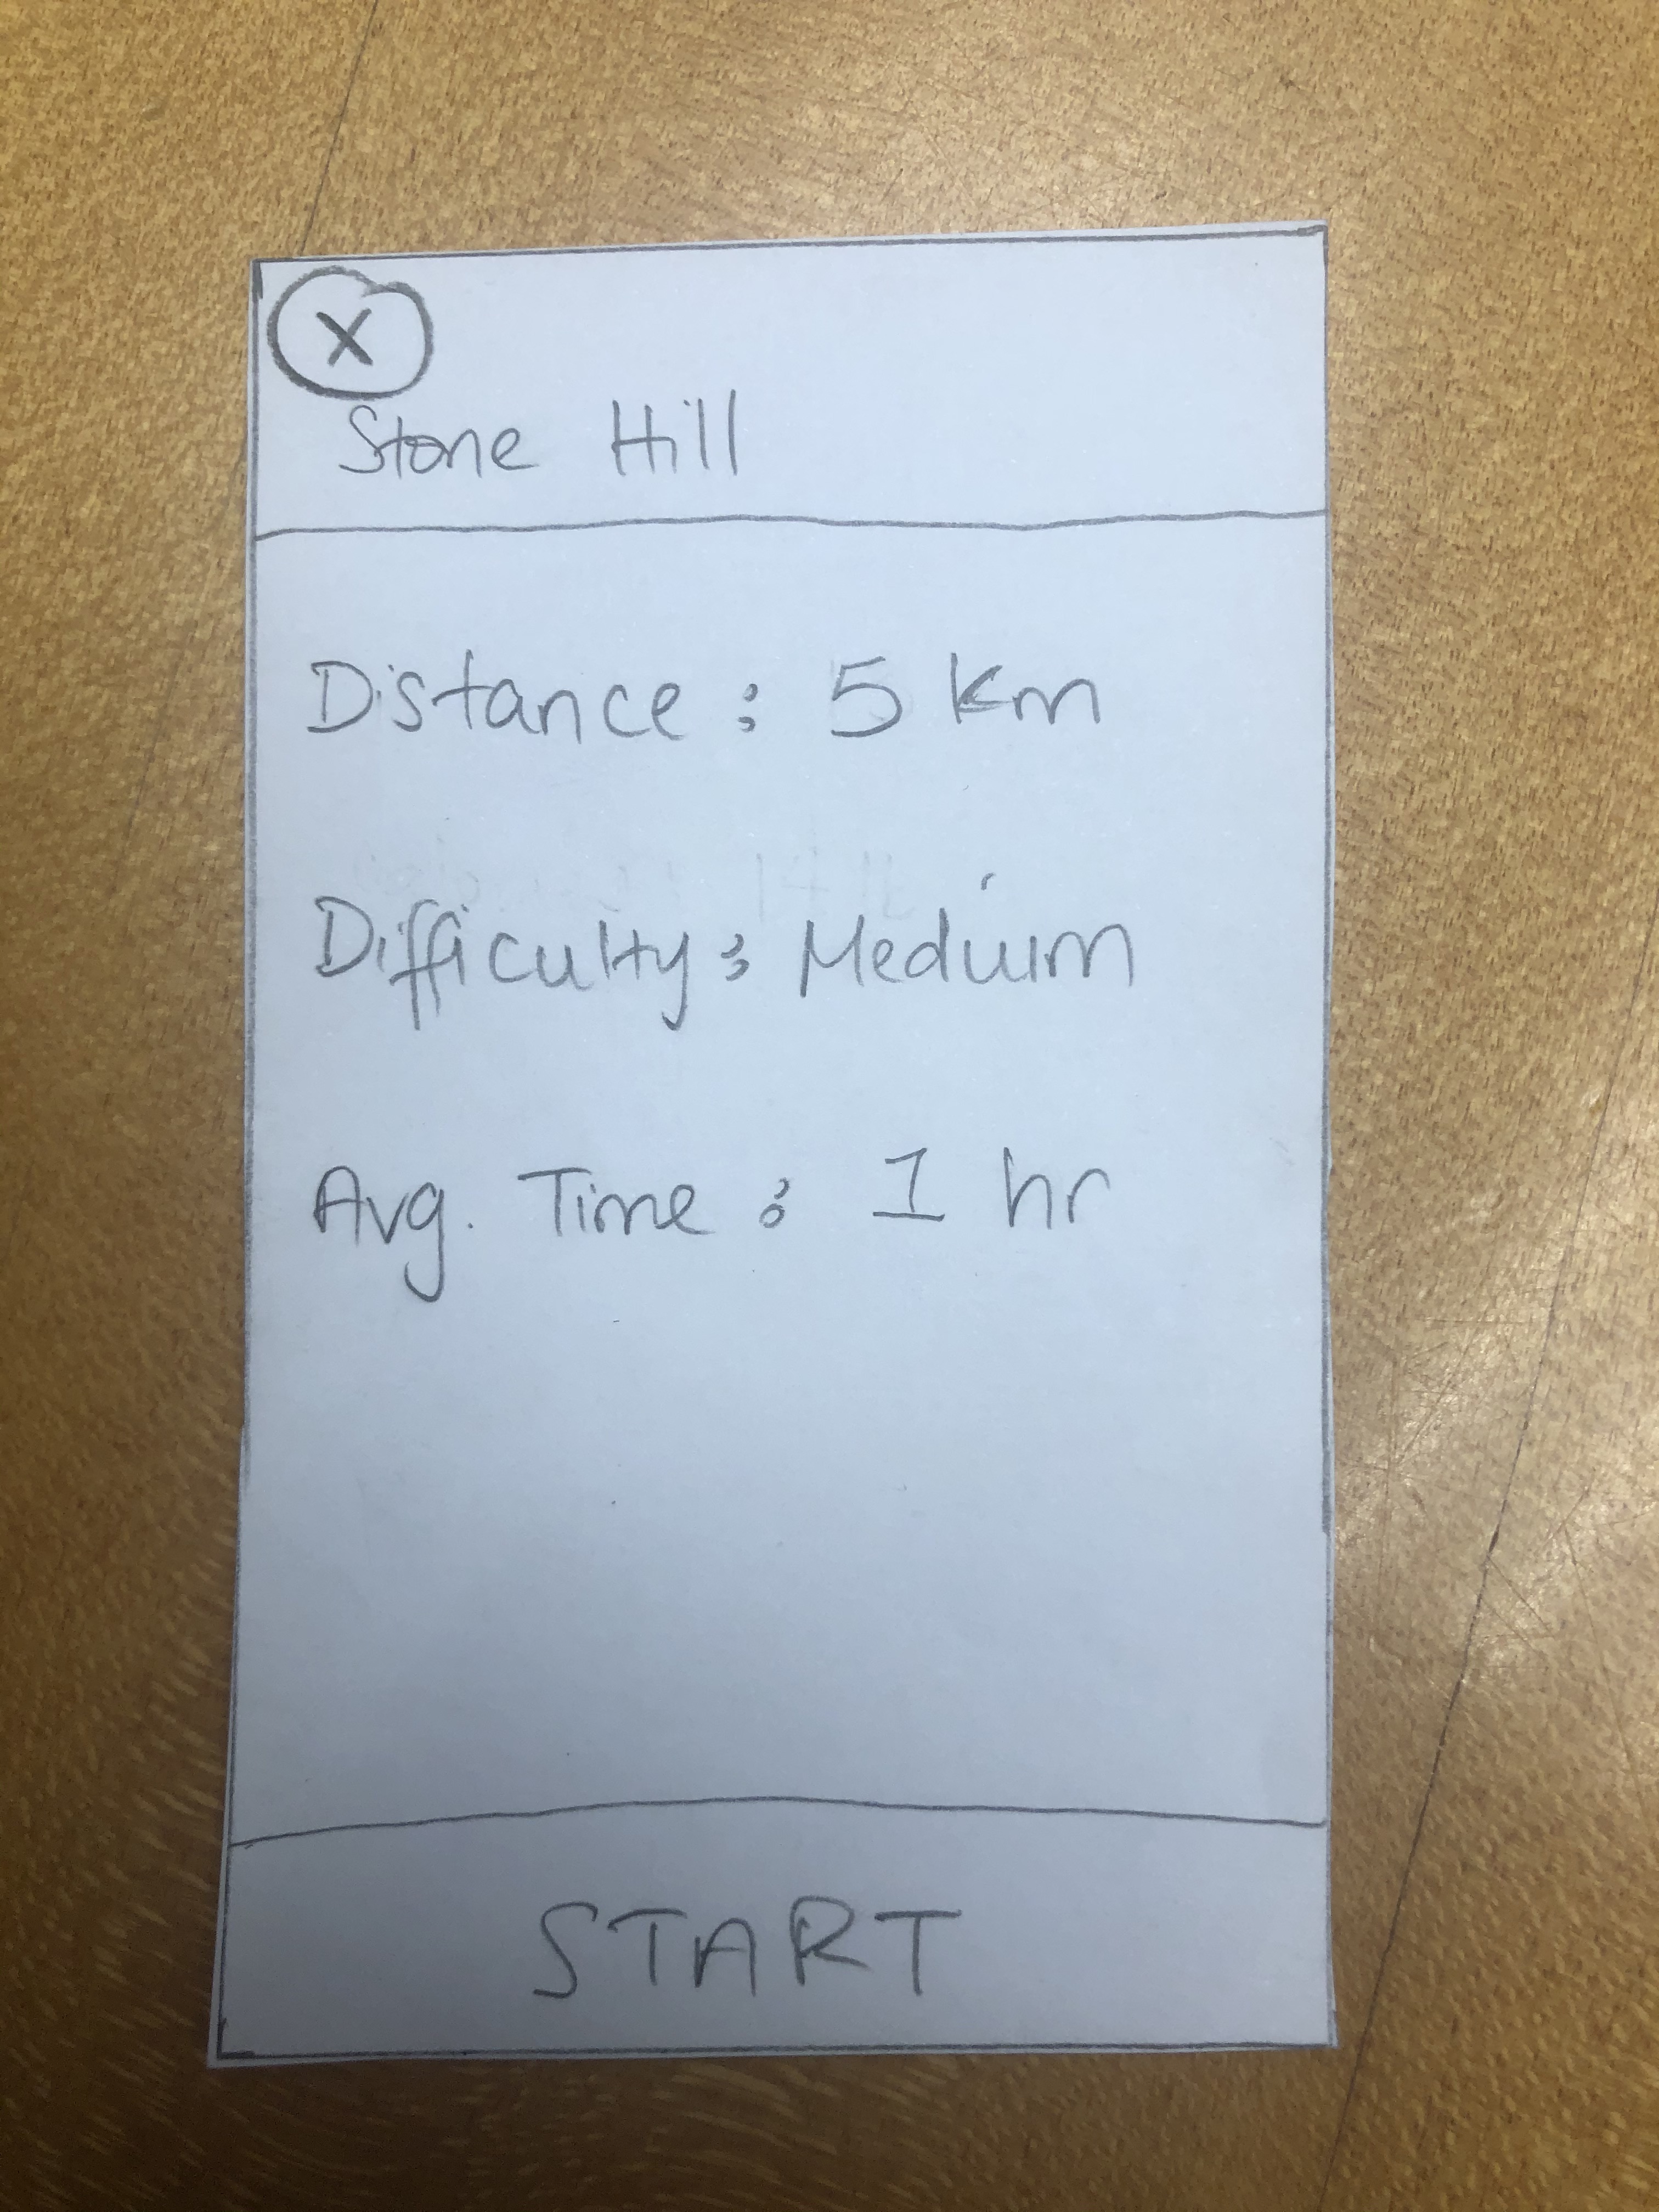 X
Stone Hill
Distance : 5 km
Difficulty : Medium
Avg. Time : 1 hr
START